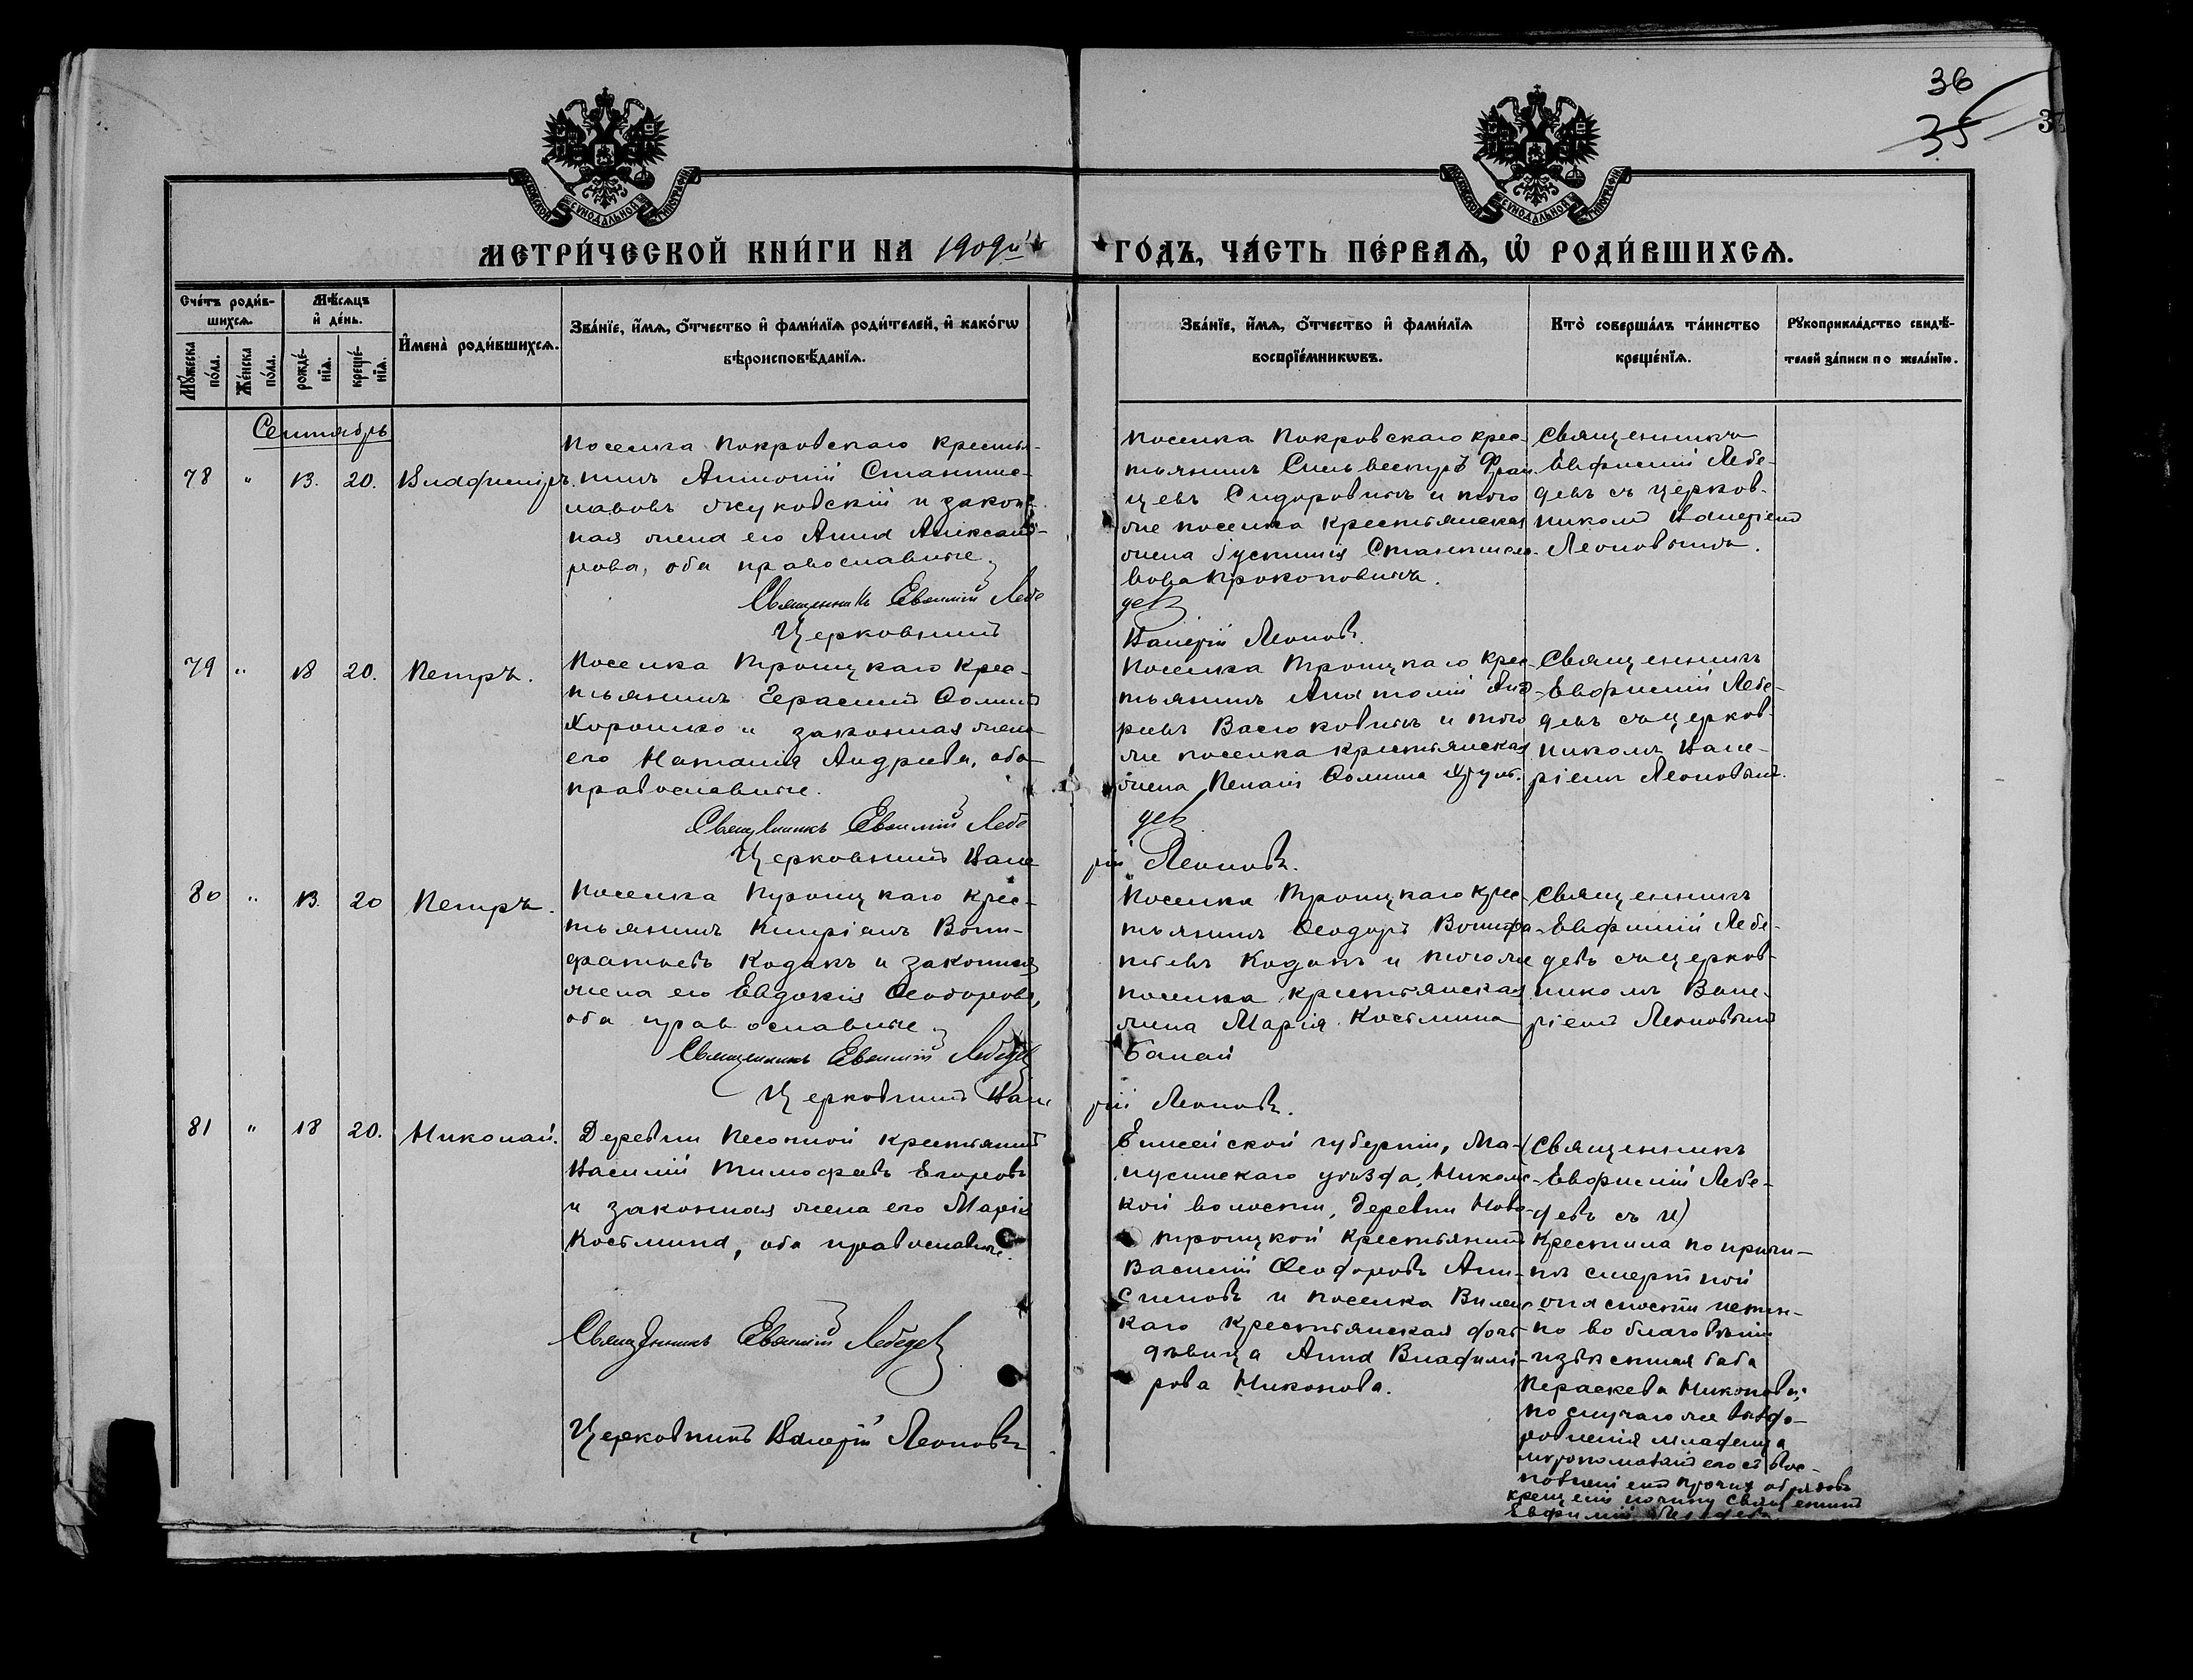 36
35
МОСКОВСКОЙ СУНОДАЛЬНОЙ ТИПОГРАФІИ
МОСКОВСКОЙ СУНОДАЛЬНОЙ ТИПОГРАФІИ
МЕТРИ́ЧЕСКОЙ КНИ́ГИ НА 1909й
ГО́ДЪ, ЧА́СТЬ ПЕ́РВАЯ, Ѽ РОДИ́ВШИХСЯ.
Сче́тъ роди́в-
шихся.
Мѣ́сяцъ
и҆ де́нь.
Мꙋ́жеска по́ла.
Же́нска по́ла.
рожде́-нїѧ.
креще́-нїѧ.
И҆мена̀ роди́вшихсѧ.
Зва́нїе, и҆́мѧ, ѻ҆́тчество и҆ фами́лїѧ роди́телей, и҆ како́гѡ
вѣроисповѣ́данїѧ.
Зва́нїе, и҆́мѧ, ѻ҆́тчество и҆ фами́лїѧ
воспрїе́мникѡвъ.
Кто̀ соверша́лъ та́инство
креще́нїѧ.
Рꙋкоприкла́дство свидѣ́-
телей за́писи по жела́нїю.
Сентябрь
78 " 13. 20. Владиміръ.
Поселка Покровскаго крестья-
нинъ Антоній Станисла-
вовъ Жуковскій и закон-
ная жена его Анна Алексан-
рова, оба православные.
Священникъ Евѳимій Лебе
Церковникъ
Поселка Покровскаго крес-
тьянинъ Сильвестръ Фран
цевъ Сидоровичъ и того
же поселка крестьянская
жена Іустинія Станисла-
вова Прокоповичъ.
девъ
Валерій Леоновъ.
Священникъ
Евфимій Лебе-
девъ съ церков-
никомъ Валеріемъ
Леоновымъ.
79 " 18 20. Петръ.
Поселка Троицкаго крес-
тьянинъ Герасимъ Ѳоминъ
Хорошко и законная жена
его Наталія Андреева, оба
православные.
Священникъ Евѳимій Лебе
Церковникъ Вале
Поселка Троицкаго крес-
тьянинъ Анатолій Анд
реевъ Васюковичъ и того
же поселка крестьянская
жена Ѳомина
девъ
рій Леоновъ.
Священникъ
Евфимій Лебе-
девъ съ церков-
никомъ Вале-
ріемъ Леоновымъ.
80 " 13. 20 Петръ.
Поселка Троицкаго крес-
тьянинъ Кипріанъ Вони-
фатьевъ Кодакъ и законная
жена его Евдокія Ѳеодорова,
оба православные.
Священникъ Евѳимій Лебедевъ
Церковникъ Вале
Поселка Троицкаго крес-
тьянинъ Ѳеодоръ Вонифа
тьевъ Кодакъ и того же
поселка крестьянская
жена Марія Косьмина
рій Леоновъ.
Священникъ
Евфимій Лебе-
девъ съ церков-
никомъ Вале-
ріемъ Леоновымъ
81 " 18 20. Николай.
Деревни Песочной крестьянинъ
Василій Тимофеевъ Егоровъ
и законная жена его Марія
Косьмина, оба православные.
Священникъ Евѳимій Лебедевъ
Церковникъ Валерій Леоновъ
Енисейской губерніи, Ми-
нусинскаго уѣзда, Николь-
кой волости, деревни Ново-
троицкой крестьянинъ
Василій Ѳеодоровъ Ани-
симовъ и поселка Вилен-
каго крестьянская дочь
дѣвица Анна Владимі-
рова Никонова.
Священникъ
Евфимій Лебе-
девъ съ
Крестила по причи-
нѣ смертной
опасности
баба
Параскева Никонова;
по случаю же выздо-
ровленія младенца
прочихъ обрядовъ
крещенія
Евфимій Лебедевъ